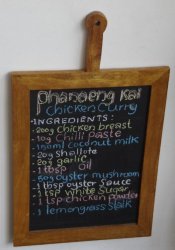 phanaeng Kai
chicken Curry
INGREDIENTS:
-200g chicken breast
-10g Chilli paste
-150ml coconut milk
-20g Shallots
-20g garlic
-1 tbsp oil
-50g oyster mushroom
-1 tbsp oyster sauce
-1 tsp white Sugar
-1 tsp chicken powder
-1 lemongrass stalk